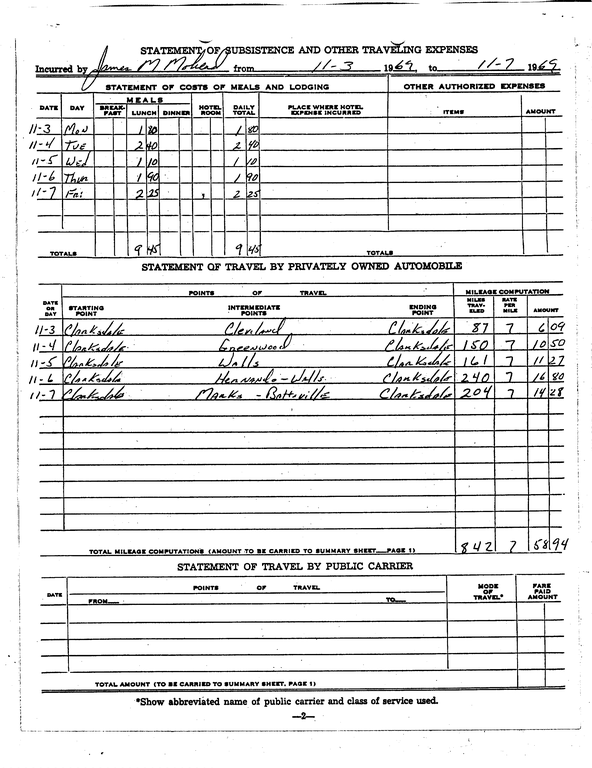 STATEMENT OF SUBSISTENCE AND OTHER TRAVELING EXPENSES
Incurred by James M Mohead from 11-3 1969, to 11-7 1969
STATEMENT OF COSTS OF MEALS AND LODGING OTHER AUTHORIZED EXPENSES
MEALS
DATE DAY BREAK-FAST LUNCH DINNER HOTEL ROOM DAILY TOTAL PLACE WHERE HOTEL EXPENSE INCURRED ITEMS AMOUNT
11-3 Mon 1 80 1 80
11-4 Tue 2 40 2 40
11-5 Wed 1 10 1 10
11-6 Thur 1 90 1 90
11-7 Fri 2 25 2 25
TOTALS 9 45 9 45 TOTALS
STATEMENT OF TRAVEL BY PRIVATELY OWNED AUTOMOBILE
POINTS OF TRAVEL MILEAGE COMPUTATION
DATE OR DAY STARTING POINT INTERMEDIATE POINTS ENDING POINT MILES TRAV-ELED RATE PER MILE AMOUNT
11-3 Clarksdale Cleveland Clarksdale 87 7 6 09
11-4 Clarksdale Greenwood Clarksdale 150 7 10 50
11-5 Clarksdale Walls Clarksdale 161 7 11 27
11-6 Clarksdale Hernando - Walls Clarksdale 240 7 16 80
11-7 Clarksdale Marks - Batesville Clarksdale 204 7 14 28
TOTAL MILEAGE COMPUTATIONS (AMOUNT TO BE CARRIED TO SUMMARY SHEET—PAGE 1) 842 7 58 94
STATEMENT OF TRAVEL BY PUBLIC CARRIER
DATE POINTS OF TRAVEL MODE OF TRAVEL* FARE PAID AMOUNT
FROM— TO—
TOTAL AMOUNT (TO BE CARRIED TO SUMMARY SHEET, PAGE 1)
*Show abbreviated name of public carrier and class of service used.
—2—